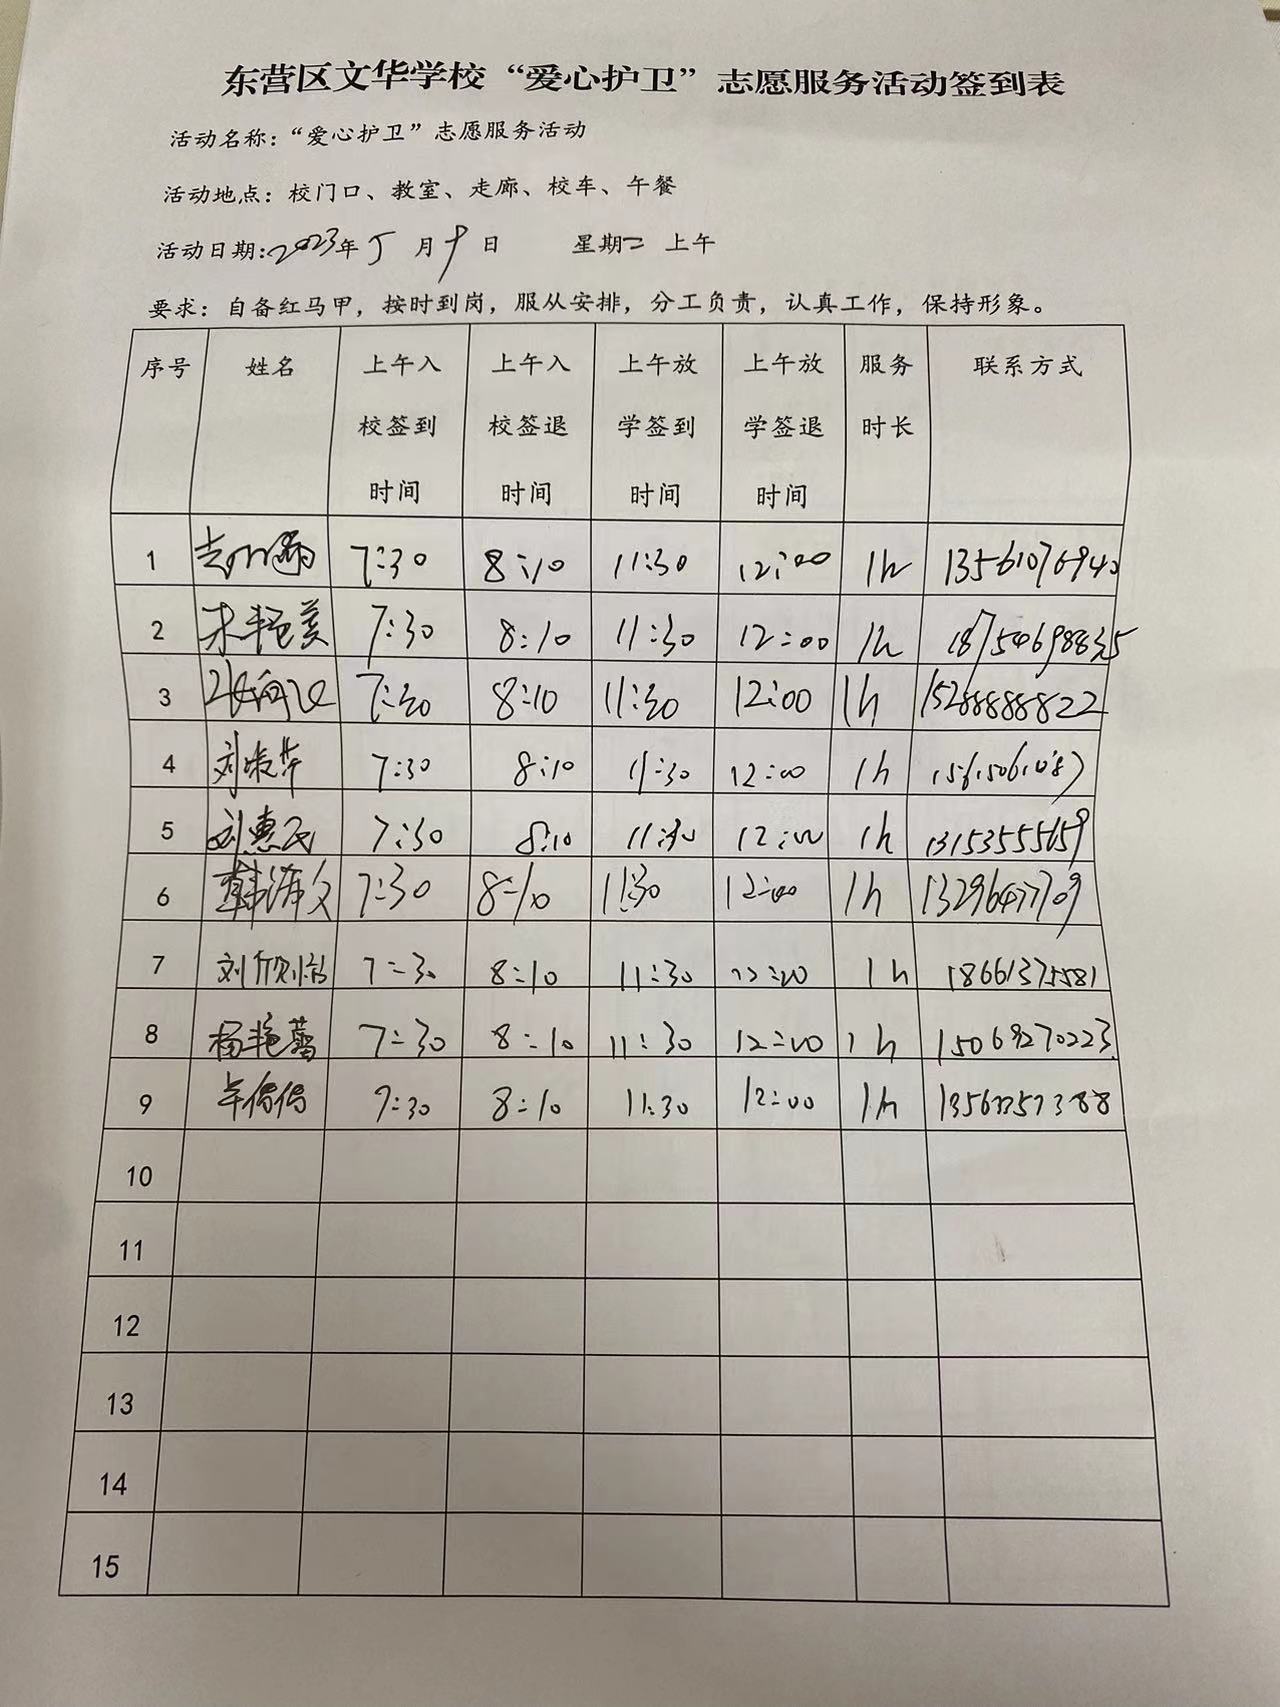 东营区文华学校“爱心护卫”志愿服务活动签到表
活动名称：“爱心护卫”志愿服务活动
活动地点：校门口、教室、走廊、校车、午餐
活动日期:2023年5月9日 星期二 上午
要求：自备红马甲，按时到岗，服从安排，分工负责，认真工作，保持形象。
序号 姓名 上午入校签到时间 上午入校签退时间 上午放学签到时间 上午放学签退时间 服务时长 联系方式
1 7:30 8:10 11:30 12:00 1h 13561076940
2 宋艳美 7:30 8:10 11:30 12:00 1h 18754698835
3 7:30 8:10 11:30 12:00 1h 15288888822
4 7:30 8:10 11:30 12:00 1h
5 刘惠民 7:30 8:10 11:30 12:00 1h 13153555659
6 韩海文 7:30 8:10 11:30 12:00 1h 13296477709
7 7:30 8:10 11:30 12:00 1h 18661375581
8 杨艳蕾 7:30 8:10 11:30 12:00 1h 15069270223
9 7:30 8:10 11:30 12:00 1h
10
11
12
13
14
15